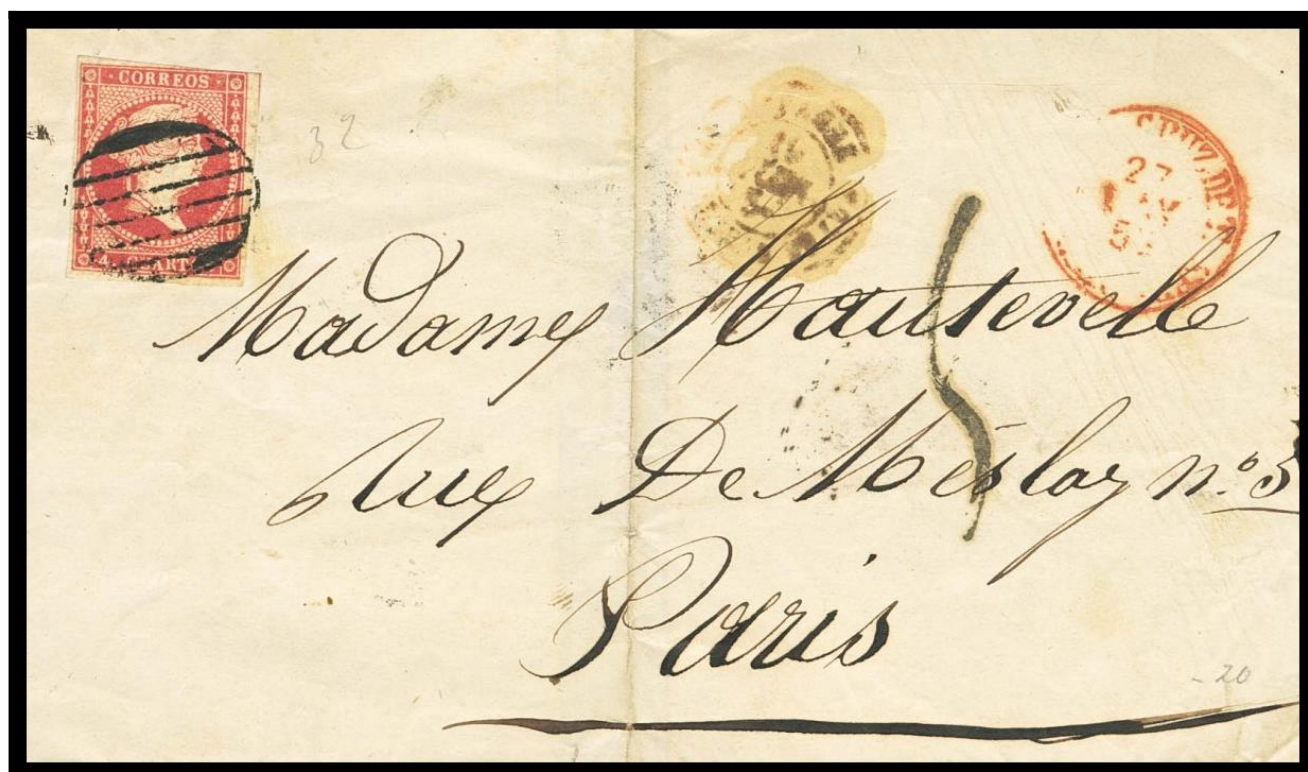 CORREOS
4 CUARTOS
32
27
Madame Hauteville
Rue De Meslay nº 5
Paris
20